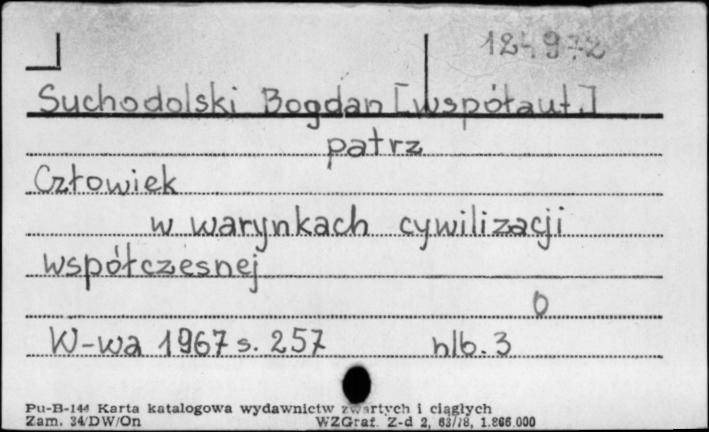 124972
Suchodolski Bogdan [współaut.]
patrz
Człowiek
w warynkach cywilizacji
współczesnej
0
W-wa 1967 s. 257 nlb. 3
Pu-B-144 Karta katalogowa wydawnictw zwartych i ciągłych
Zam. 34/DW/On WZGraf. Z-d 2, 63/78, 1.866.000